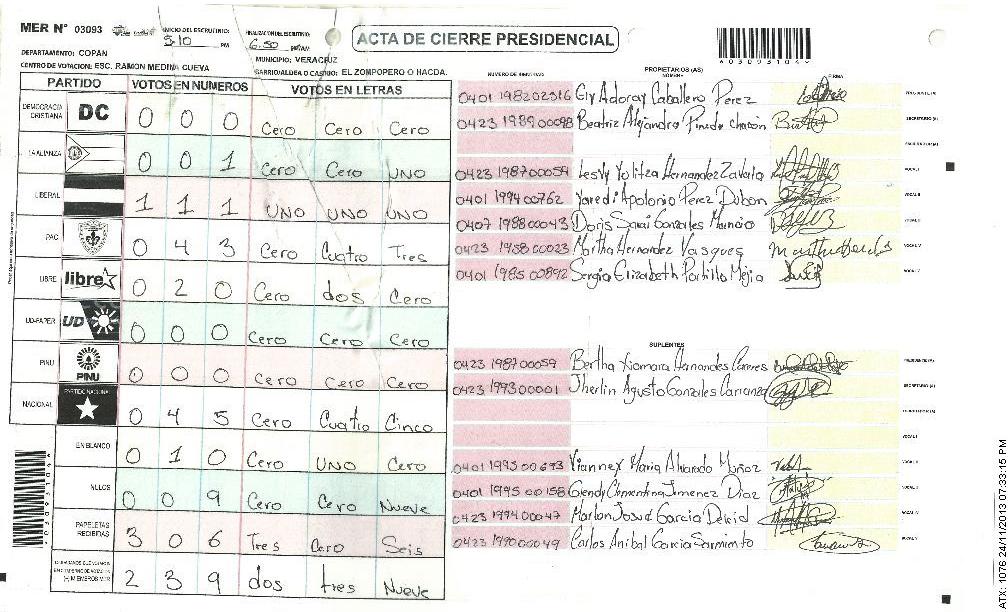 MER N° 03093
INICIO DEL ESCRUTINIO: 5:10 PM
FINALIZACION DEL ESCRUTINIO: 6:50 PM/AM
ACTA DE CIERRE PRESIDENCIAL
DEPARTAMENTO: COPAN
MUNICIPIO: VERACRUZ
CENTRO DE VOTACION: ESC. RAMON MEDINA CUEVA
BARRIO/ALDEA O CASERIO: EL ZOMPOPERO O HACDA.
PARTIDO VOTOS EN NUMEROS VOTOS EN LETRAS
DEMOCRACIA CRISTIANA DC 0 0 0 Cero Cero Cero
LA ALIANZA 0 0 1 Cero Cero UNO
LIBERAL 1 1 1 UNO UNO UNO
PAC 0 4 3 Cero Cuatro Tres
LIBRE libre 0 2 0 Cero dos Cero
UD-FAPER UD 0 0 0 Cero Cero Cero
PINU PINU 0 0 0 Cero Cero Cero
NACIONAL PARTIDO NACIONAL 0 4 5 Cero Cuatro Cinco
EN BLANCO 0 1 0 Cero UNO Cero
NULOS 0 0 9 Cero Cero Nueve
PAPELETAS RECIBIDAS 3 0 6 Tres Cero Seis
(+) MIEMBROS MER 2 3 9 dos tres Nueve
PROPIETARIOS (AS)
NOMBRE FIRMA
0401 198202516 Gly Adoray Caballero Perez PRESIDENTE (A)
0423 198900098 Beatriz Alejandra Pineda Chacon SECRETARIO (A)
ESCRUTADOR (A)
0423 198700059 Lesvy Yolitza Hernandez Zavala VOCAL I
0401 199400762 Yaredi Apolonio Perez Dubon VOCAL II
0407 198800043 Doris Sarai Gonzales Mancio
0423 195800023 Martha Hernandez Vasques VOCAL IV
0401 198500892 Sergia Elizabeth Portillo Mejia VOCAL V
SUPLENTES
0423 198700059 Bertha Xiomara Hernandes Caceres
0423 199300001 Jherlin Agusto Gonzales Carranza SECRETARIO (A)
VOCAL I
0401 199500693 Viannex Maria Alvarado Muñoz
0401 199500158 Glendy Clementina Jimenez Diaz
0423 199400047 Marlon Josue Garcia
0423 199000049 Carlos Anibal Garcia Sarmiento
ATX: 1076 24/11/2013 07:33:15 PM